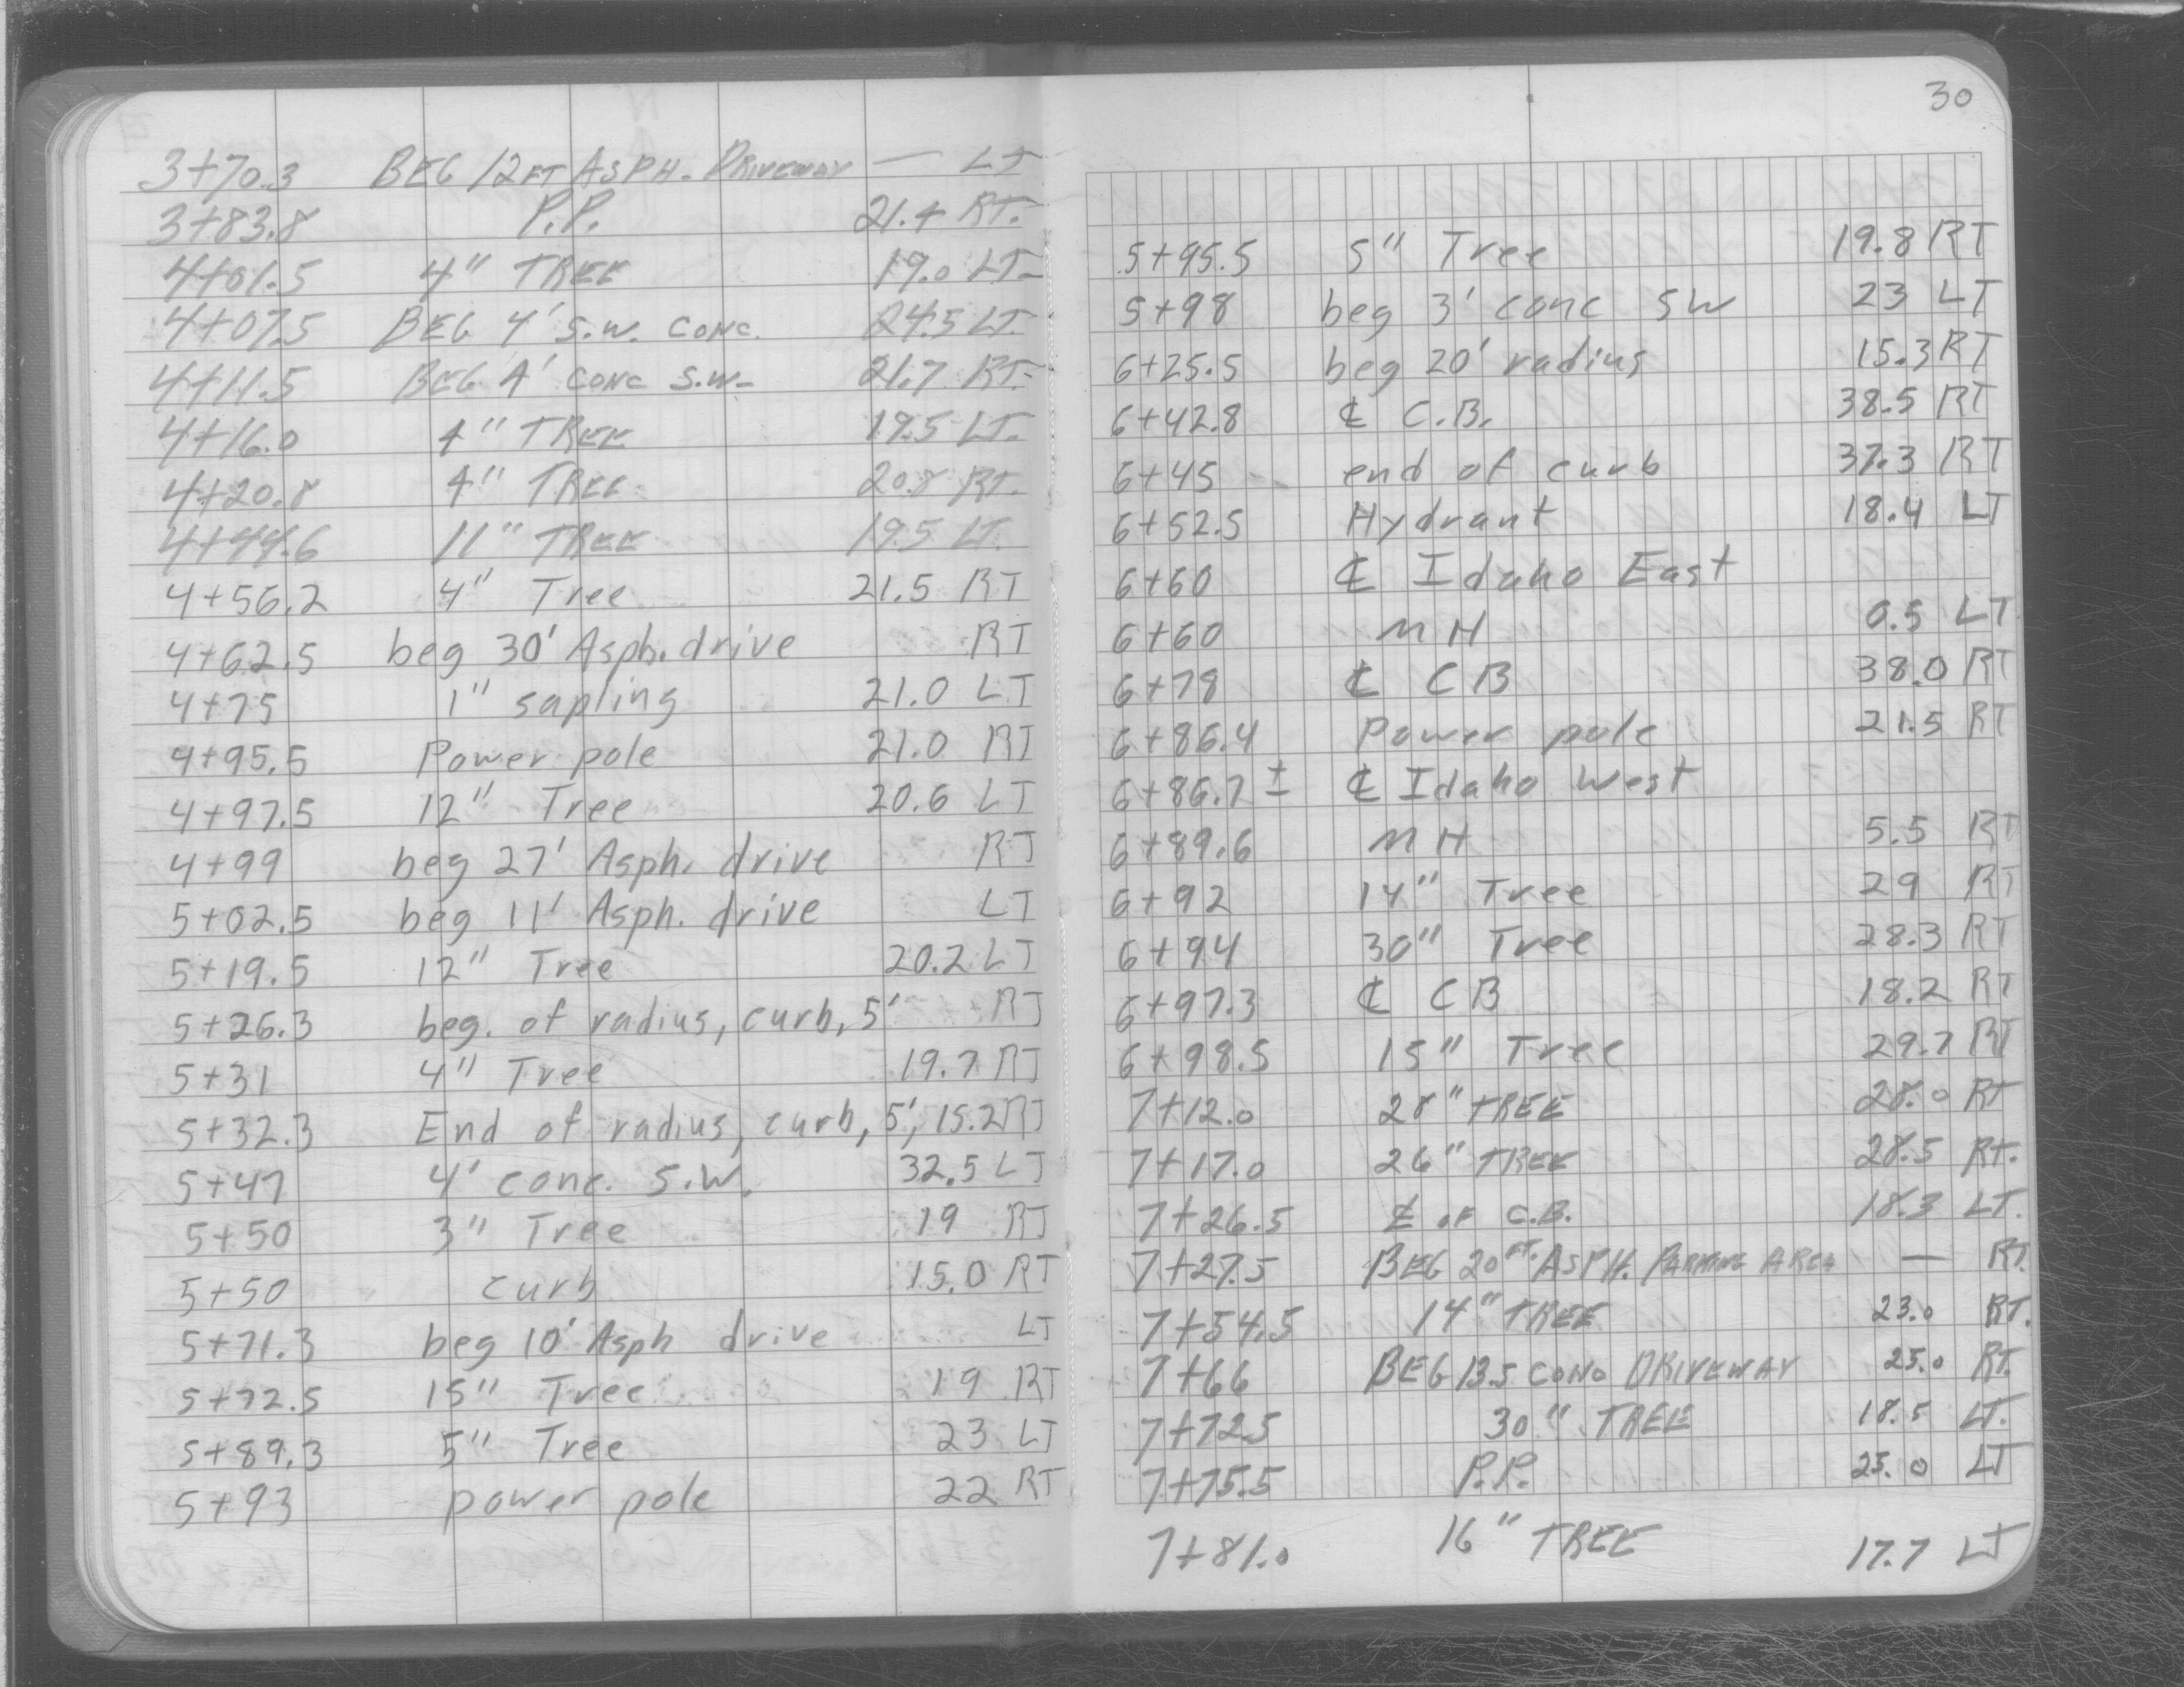 3+70.3 BEG 12FT ASPH. DRIVEWAY — LT
3+83.8 P.P. 21.4 RT.
4+01.5 4" TREE 19.0 LT
4+07.5 BEG 4' S.W. CONC. 24.5 LT.
4+11.5 BEG 4' CONC S.W. 21.7 RT.
4+16.0 4" TREE 19.5 LT.
4+20.8 4" TREE 20.8 RT.
4+44.6 11" TREE 19.5 LT.
4+56.2 4" Tree 21.5 RT
4+62.5 beg 30' Asph. drive RT
4+75 1" sapling 21.0 LT
4+95.5 Power pole 21.0 RT
4+97.5 12" Tree 20.6 LT
4+99 beg 27' Asph. drive RT
5+02.5 beg 11' Asph. drive LT
5+19.5 12" Tree 20.2 LT
5+26.3 beg. of radius, curb, 5' RT
5+31 4" Tree 19.7 RT
5+32.3 End of radius, curb, 5', 15.2 RT
5+47 4' conc. S.W. 32.5 LT
5+50 3" Tree 19 RT
5+50 curb 15.0 RT
5+71.3 beg 10' Asph drive LT
5+72.5 15" Tree 19 RT
5+89.3 5" Tree 23 LT
5+93 power pole 22 RT
30
5+95.5 5" Tree 19.8 RT
5+98 beg 3' conc SW 23 LT
6+25.5 beg 20' radius 15.3 RT
6+42.8 ℄ C.B. 38.5 RT
6+45 end of curb 37.3 RT
6+52.5 Hydrant 18.4 LT
6+60 ℄ Idaho East
6+60 MH 0.5 LT
6+78 ℄ CB 38.0 RT
6+86.4 Power pole 21.5 RT
6+86.7 ± ℄ Idaho West
6+89.6 MH 5.5 RT
6+92 14" Tree 29 RT
6+94 30" Tree 28.3 RT
6+97.3 ℄ CB 18.2 RT
6+98.5 15" Tree 29.7 RT
7+12.0 28" TREE 28.0 RT
7+17.0 26" TREE 28.5 RT.
7+26.5 ℄ OF C.B. 18.3 LT.
7+27.5 BEG 20FT. ASPH. PARKING AREA — RT.
7+54.5 14" TREE 23.0 RT.
7+66 BEG 13.5 CONC DRIVEWAY 25.0 RT.
7+72.5 30" TREE 18.5 LT.
7+75.5 P.P. 25.0 LT
7+81.0 16" TREE 17.7 LT